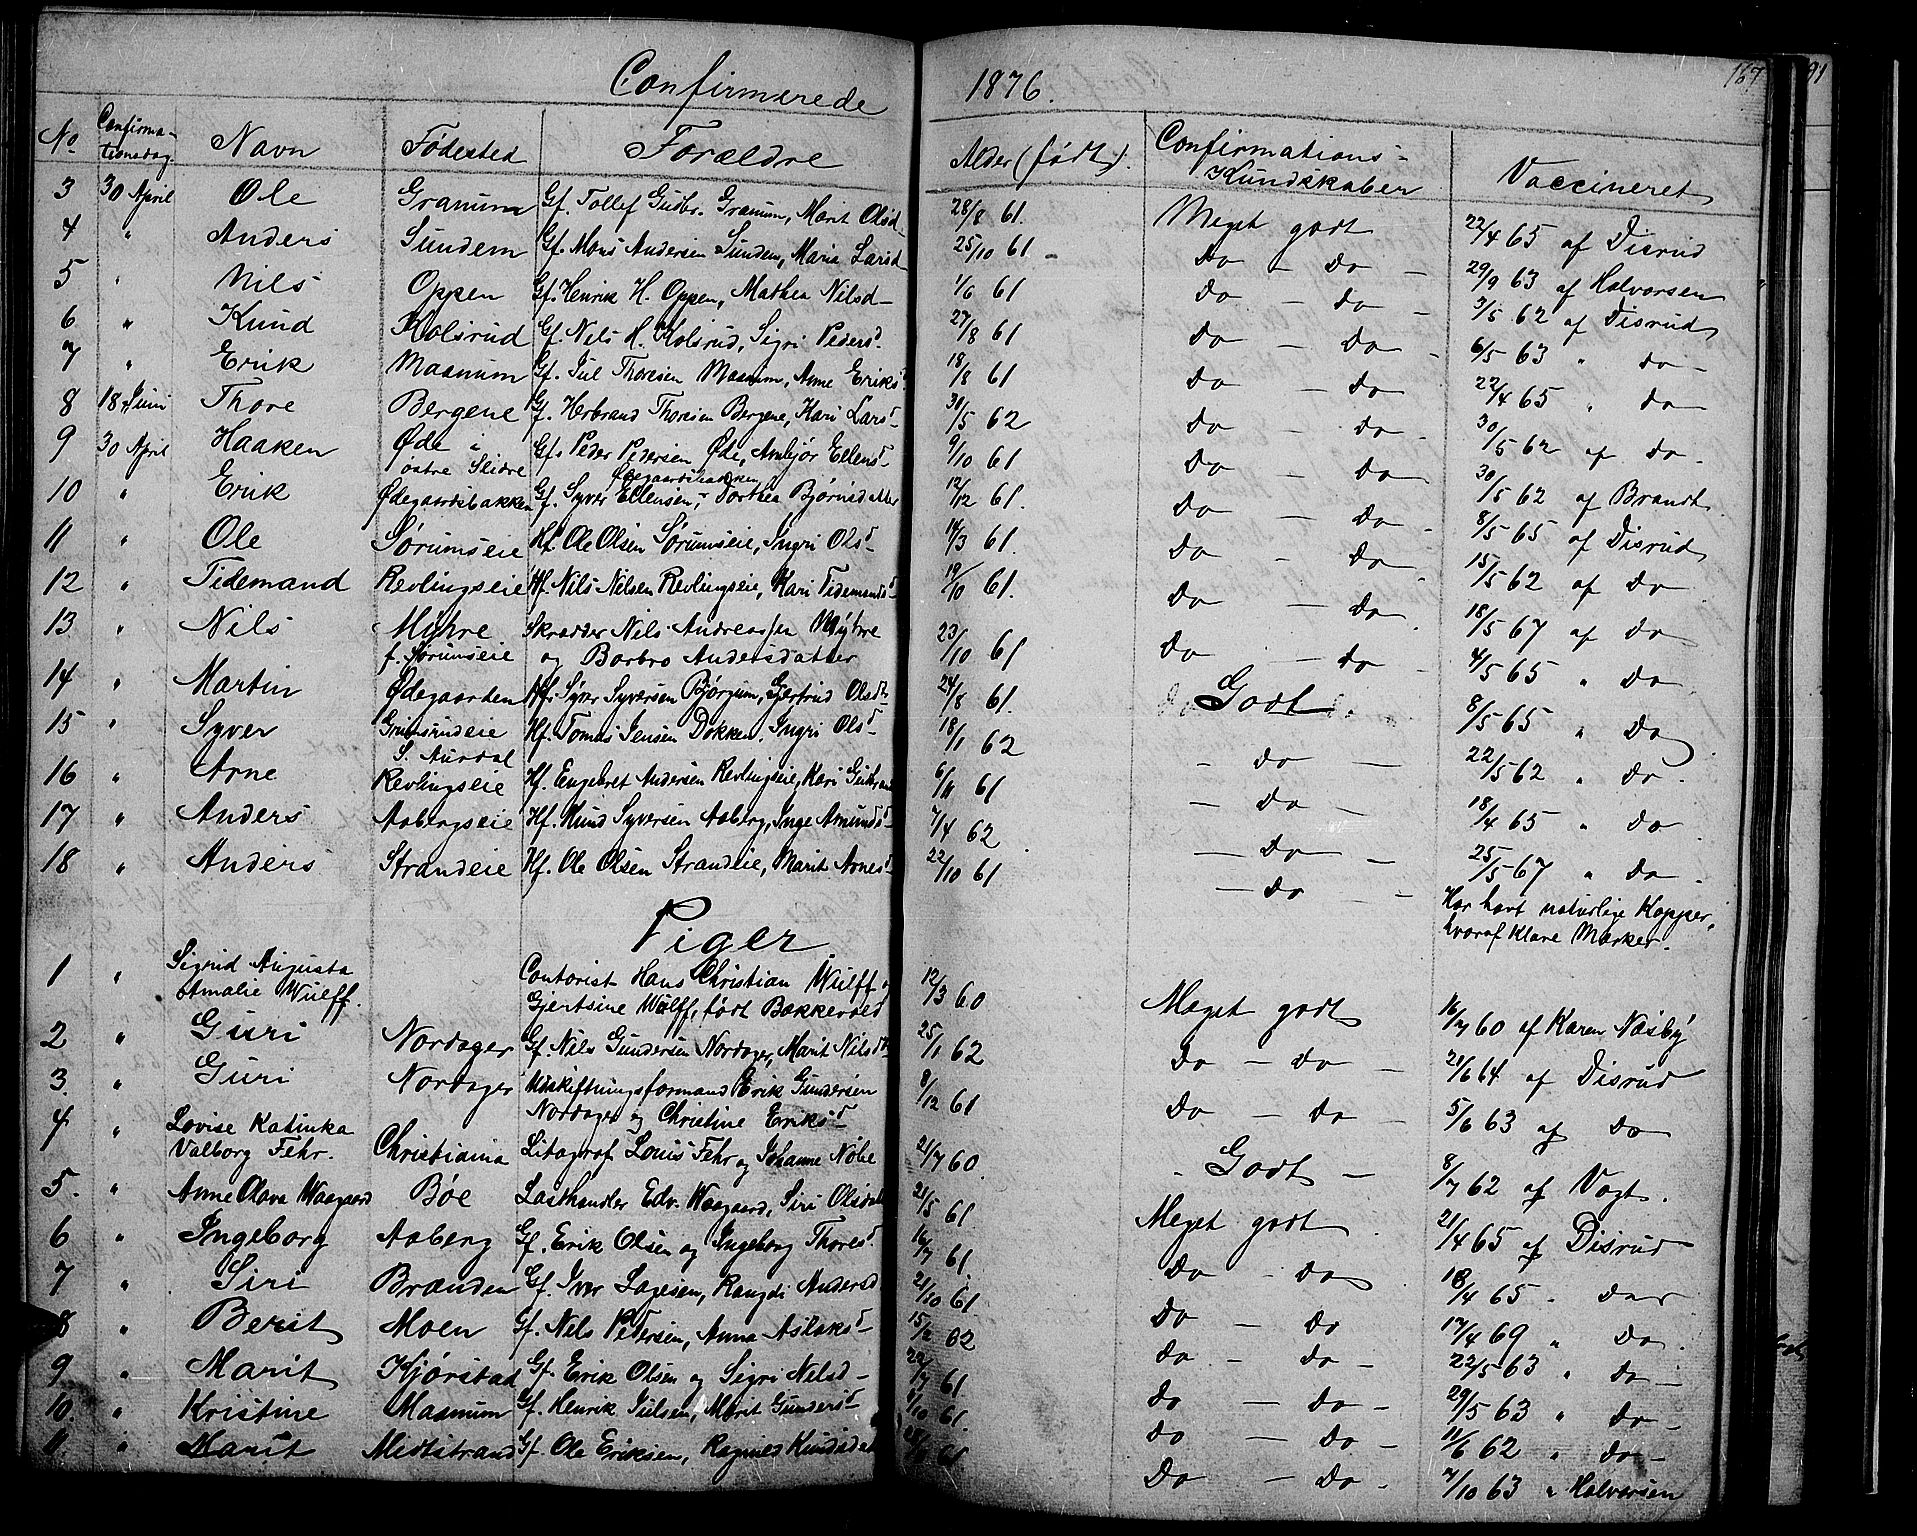 Confirmerede 1876. 167 91
No Confirmationsdag Navn Fødested Forældre Alder (født). Confirmations-Kundskaber Vaccineret
3 30 April Ole Granum Gf. Tollef Gudbr. Granum, Marit Olsd- 28/8 61. Meget godt 22/4 65 af Disrud
4 " Anders Sundem Gf. Mons Andersen Sundem, Maria Larsd- 25/10 61. Do - Do - 29/9 63 af Halvorsen
5 " Nils Oppen Gf. Henrik H. Oppen, Mathea Nilsd- 1/6 61 Do - do - 3/5 62 af Disrud
6 " Knud Kolsrud Gf. Nils H. Kolsrud, Sigri Pedersd. 27/8 61 Do - Do - 6/5 63 " do -
7 " Erik Maanum Gf. Jul Thoresen Maanum, Anne Eriksd 18/8 61 Do - do 22/4 65 " do
8 18 Juni Thore Bergene Gf. Herbrand Thoresen Bergene, Kari Larsd- 31/5 62 Do - Do - 30/5 62 af do -
9 30 April Haaken Øde i Gf. Peder Pedersen Øde, Ambjør Ellensd- 9/10 61 Do - Do 30/5 62 af Brandt
østre Slidre
Ødegaardsbakken
10 " Erik Ødegaardsbakken Gf. Syver Ellensen, Dorthea Bjørnsdatter 12/12 61. Do - Do - 8/5 65 af Disrud
11 " Ole Sørumseie Hf. Ole Olsen Sørumseie, Ingri Olsd- 14/3 61. Do - Do 15/5 62 af Do
12 " Tidemand Revlingseie Hf. Nils Nilsen Revlingseie, Kari Tidemandsd- 19/10 61. Do - Do 18/5 67 af Do
13 " Nils Myhre Skrædder Nils Andreassen Myhre 23/10 61 Do - do - 4/5 65 " Do
f. Sørumseie og Barbro Andersdatter
14 " Martin Ødegaarden Hf. Syver Syversen Bjørgum, Gjertrud Olsdtr 24/8 61. Godt. 8/5 65 " Do
15 " Syver Grimsrudeie Hf. Tomas Jensen Dokken, Ingri Olsd- 18/1 62 - do - 22/5 62 " Do -
S. Aurdal
16 " Arne Revlingseie Hf. Engebret Andersen Revlingseie, Kari Gulbrand 6/11 61 - Do - 18/4 65 " Do
17 " Anders Aabergseie Hf. Knud Syversen Aaberg, Inge Amundsd- 7/4 62 - Do - 25/5 67 " Do
18 " Anders Strandeie Hf. Ole Olsen Strandeie, Marit Arnesd- 22/10 61 - Do - Har havt naturlige Kopper,
hvoraf klare Mærker.
Piger
1 " Sigrid Augusta Contorist Hans Christian Wulff 12/3 60 Meget godt 16/7 60 af Karen Næsby
Amalie Wulff. Gjertsine Wulff, født Bakkerød
2 " Guri Nordager Gf. Nils Gundersen Nordager, Marit Nilsdtr 25/1 62 Do - Do - 21/6 64 af Disrud
3. " Guri Nordager Udskiftningsformand Erik Gundersen 8/12 61 Do - Do 5/6 63 af Do
Nordager og Christine Eriksd-
4 " Lovise Katinka
Valborg Fehr. Christiania Litograf Louis Fehr og Johanne Nøbe 21/7 60. - Godt - 8/7 62 af Vogt.
5. " Anne Olava Waagaard Bøe Lasthandler Edv. Waagaard, Siri Olsdat 21/5 61 Meget godt 21/4 65 af Disrud
6 " Ingeborg Aaberg Gf. Erik Olsen og Ingeborg Thoresd. 16/7 61. Do - do 18/4 65 - Do
7 " Siri Brænden Gf. Iver Lagesen, Rangdi Andersd 21/10 61 Do - Do 17/4 69 " Do.
8 " Berit Moen Gf. Nils Pedersen, Anna Aslaksd- 15/2 62 Do - Do - 22/5 63 " Do -
9 " Marit Kjørstad Gf. Erik Olsen og Sigri Nilsd- 61 Do - Do - 29/5 63 " Do -
10. " Kristine Maanum Gf. Henrik Julsen, Marit Gundersd- 61. Do - Do - 11/6 62 " Do -
11 " Marit Midtstrand Gf. Ole Eriksen, Ragnild Knudsdat 61 Do - Do - 7/10 63 " Halvorsen